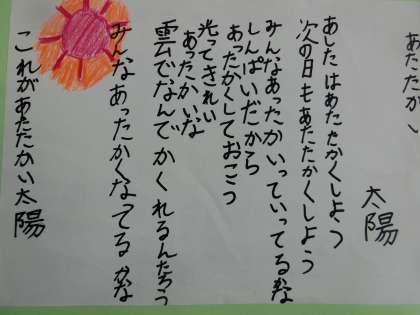 あたたかい
太陽
あしたはあたたかくしよう
次の日もあたたかくしよう
みんなあったかいっていってるかな
しんぱいだから
あったかくしておこう
光ってきれい
あったかいな
雲でなんでかくれるんだろう
みんなあったかくなってるかな
これがあたたかい太陽